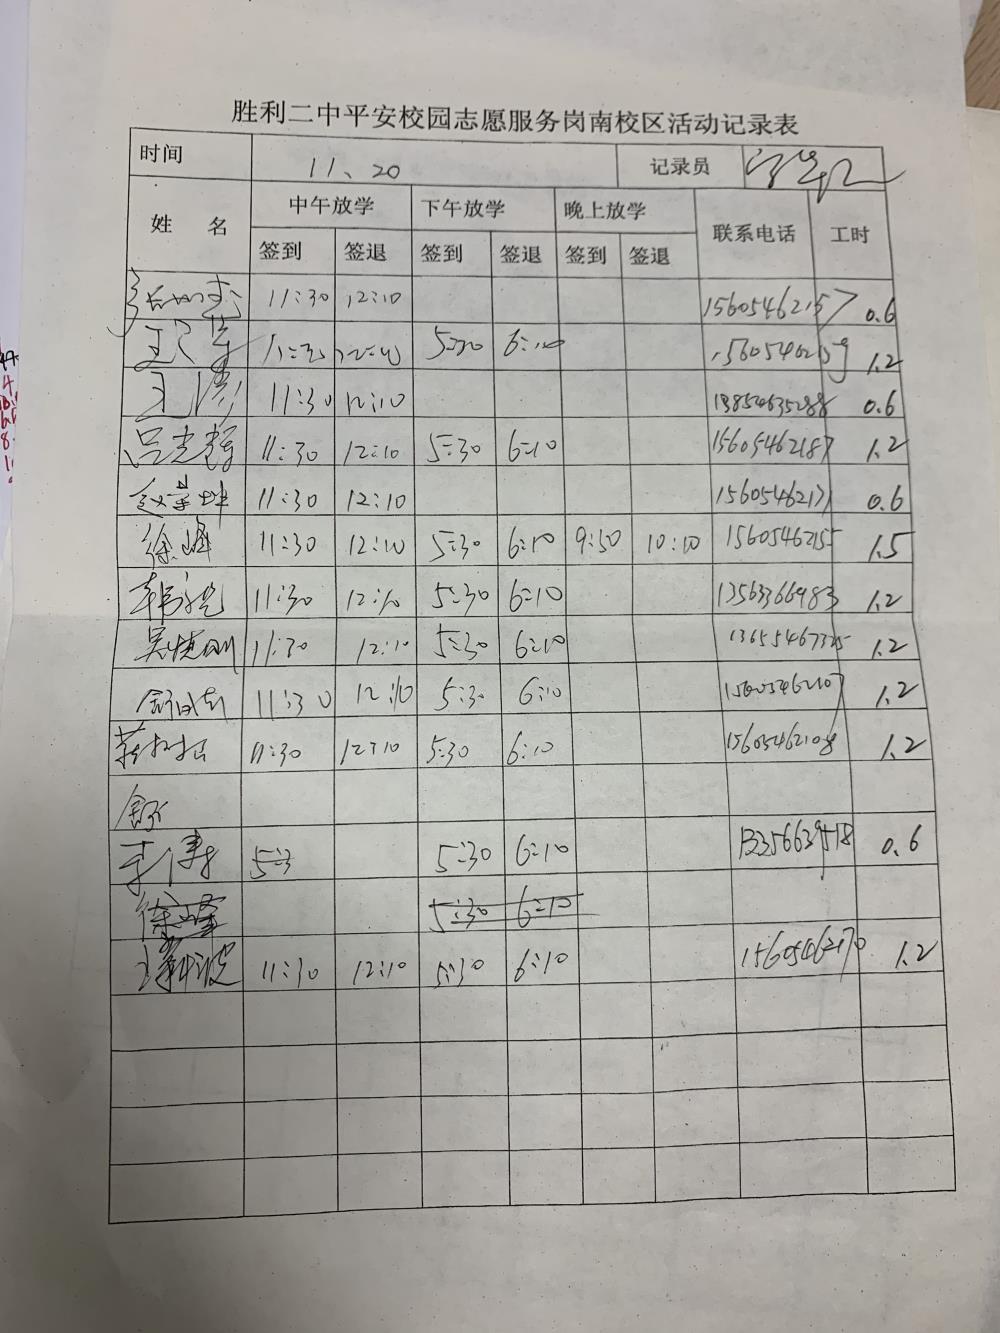 胜利二中平安校园志愿服务岗南校区活动记录表
时间 11、20 记录员
姓 名 中午放学 下午放学 晚上放学 联系电话 工时
签到 签退 签到 签退 签到 签退
11:30 12:10 15605462157 0.6
5:30 6:10 15605462159 1.2
王 11:30 12:10 13854635288 0.6
吕志辉 11:30 12:10 5:30 6:10 15605462187 1.2
赵景坤 11:30 12:10 15605462171 0.6
徐峰 11:30 12:10 5:30 6:10 9:50 10:10 15605462155 1.5
韩 11:30 12:10 5:30 6:10 13563366983 1.2
吴慎刚 11:30 12:10 5:30 6:10 13655467325 1.2
11:30 12:10 5:30 6:10 15605462107 1.2
11:30 12:10 5:30 6:10 15605462108 1.2
王涛 5:3 5:30 6:10 0.6
徐峰 5:30 6:10
波 11:30 12:10 5:30 6:10 15605462170 1.2